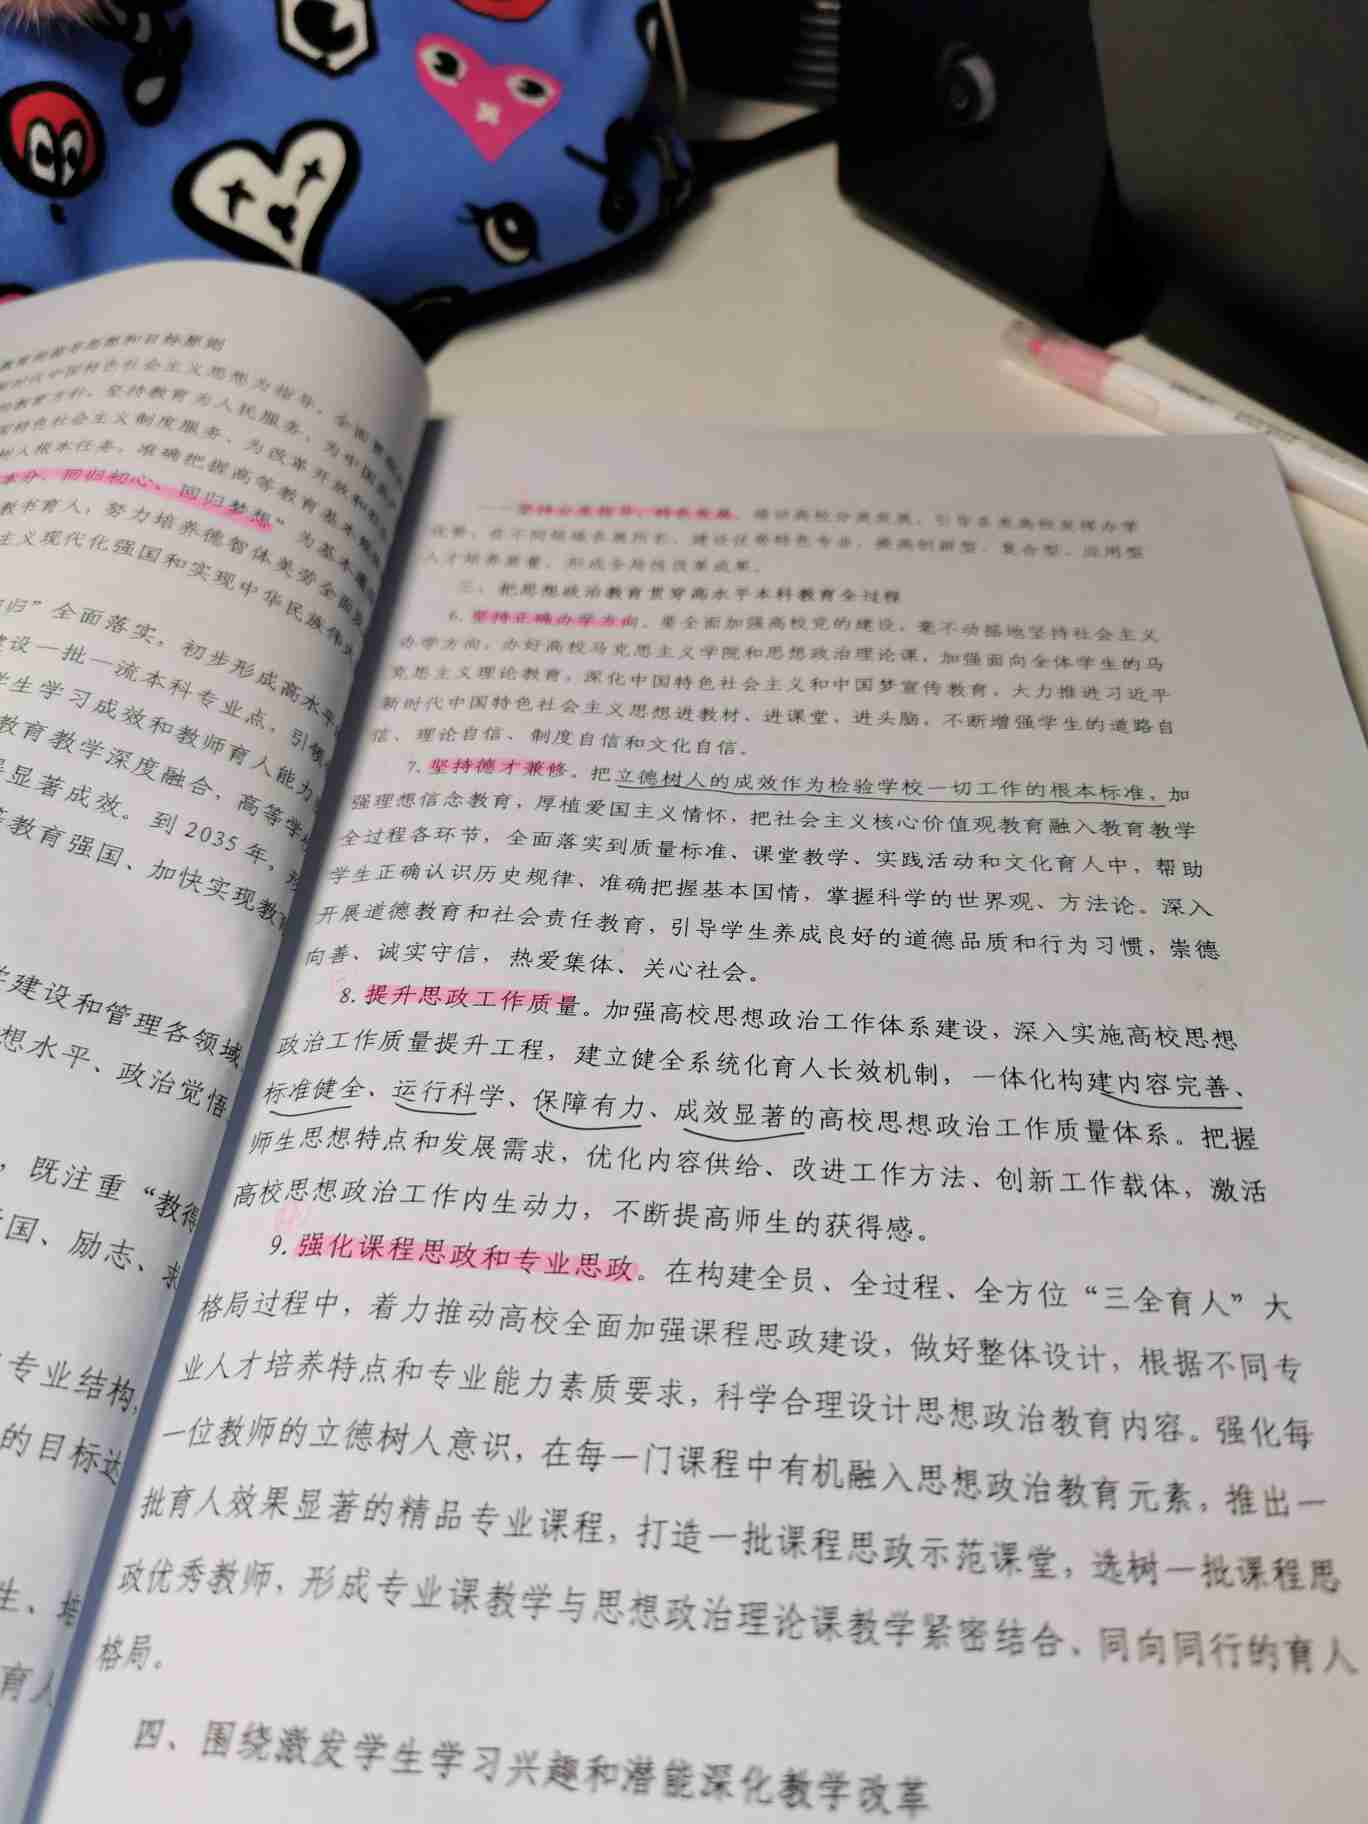 教育的指导思想和目标原则
新时代中国特色社会主义思想为指导，全面贯彻
的教育方针，坚持教育为人民服务、为中国共
国特色社会主义制度服务、为改革开放和社
树人根本任务，准确把握高等教育基本规律
本分、回归初心、回归梦想”为基本遵
教书育人，努力培养德智体美劳全面
主义现代化强国和实现中华民族伟
归”全面落实，初步形成高水平
建设一批一流本科专业点，引领
学生学习成效和教师育人能力
教育教学深度融合，高等学
显著成效。到2035年，形
教育强国、加快实现教育
建设和管理各领域
想水平、政治觉悟
，既注重“教得
国、励志、求
专业结构，
的目标达
生、培
育人
——坚持分类指导、特色发展。推动高校分类发展，引导各类高校发挥办学
优势，在不同领域各展所长，建设优势特色专业，提高创新型、复合型、应用型
人才培养质量，形成全局性改革成果。
三、把思想政治教育贯穿高水平本科教育全过程
6. 坚持正确办学方向。要全面加强高校党的建设，毫不动摇地坚持社会主义
办学方向，办好高校马克思主义学院和思想政治理论课，加强面向全体学生的马
克思主义理论教育，深化中国特色社会主义和中国梦宣传教育，大力推进习近平
新时代中国特色社会主义思想进教材、进课堂、进头脑，不断增强学生的道路自
信、理论自信、制度自信和文化自信。
7. 坚持德才兼修。把立德树人的成效作为检验学校一切工作的根本标准，加
强理想信念教育，厚植爱国主义情怀，把社会主义核心价值观教育融入教育教学
全过程各环节，全面落实到质量标准、课堂教学、实践活动和文化育人中，帮助
学生正确认识历史规律、准确把握基本国情，掌握科学的世界观、方法论。深入
开展道德教育和社会责任教育，引导学生养成良好的道德品质和行为习惯，崇德
向善、诚实守信，热爱集体、关心社会。
8. 提升思政工作质量。加强高校思想政治工作体系建设，深入实施高校思想
政治工作质量提升工程，建立健全系统化育人长效机制，一体化构建内容完善、
标准健全、运行科学、保障有力、成效显著的高校思想政治工作质量体系。把握
师生思想特点和发展需求，优化内容供给、改进工作方法、创新工作载体，激活
高校思想政治工作内生动力，不断提高师生的获得感。
9. 强化课程思政和专业思政。在构建全员、全过程、全方位“三全育人”大
格局过程中，着力推动高校全面加强课程思政建设，做好整体设计，根据不同专
业人才培养特点和专业能力素质要求，科学合理设计思想政治教育内容。强化每
一位教师的立德树人意识，在每一门课程中有机融入思想政治教育元素，推出一
批育人效果显著的精品专业课程，打造一批课程思政示范课堂，选树一批课程思
政优秀教师，形成专业课教学与思想政治理论课教学紧密结合、同向同行的育人
格局。
四、围绕激发学生学习兴趣和潜能深化教学改革